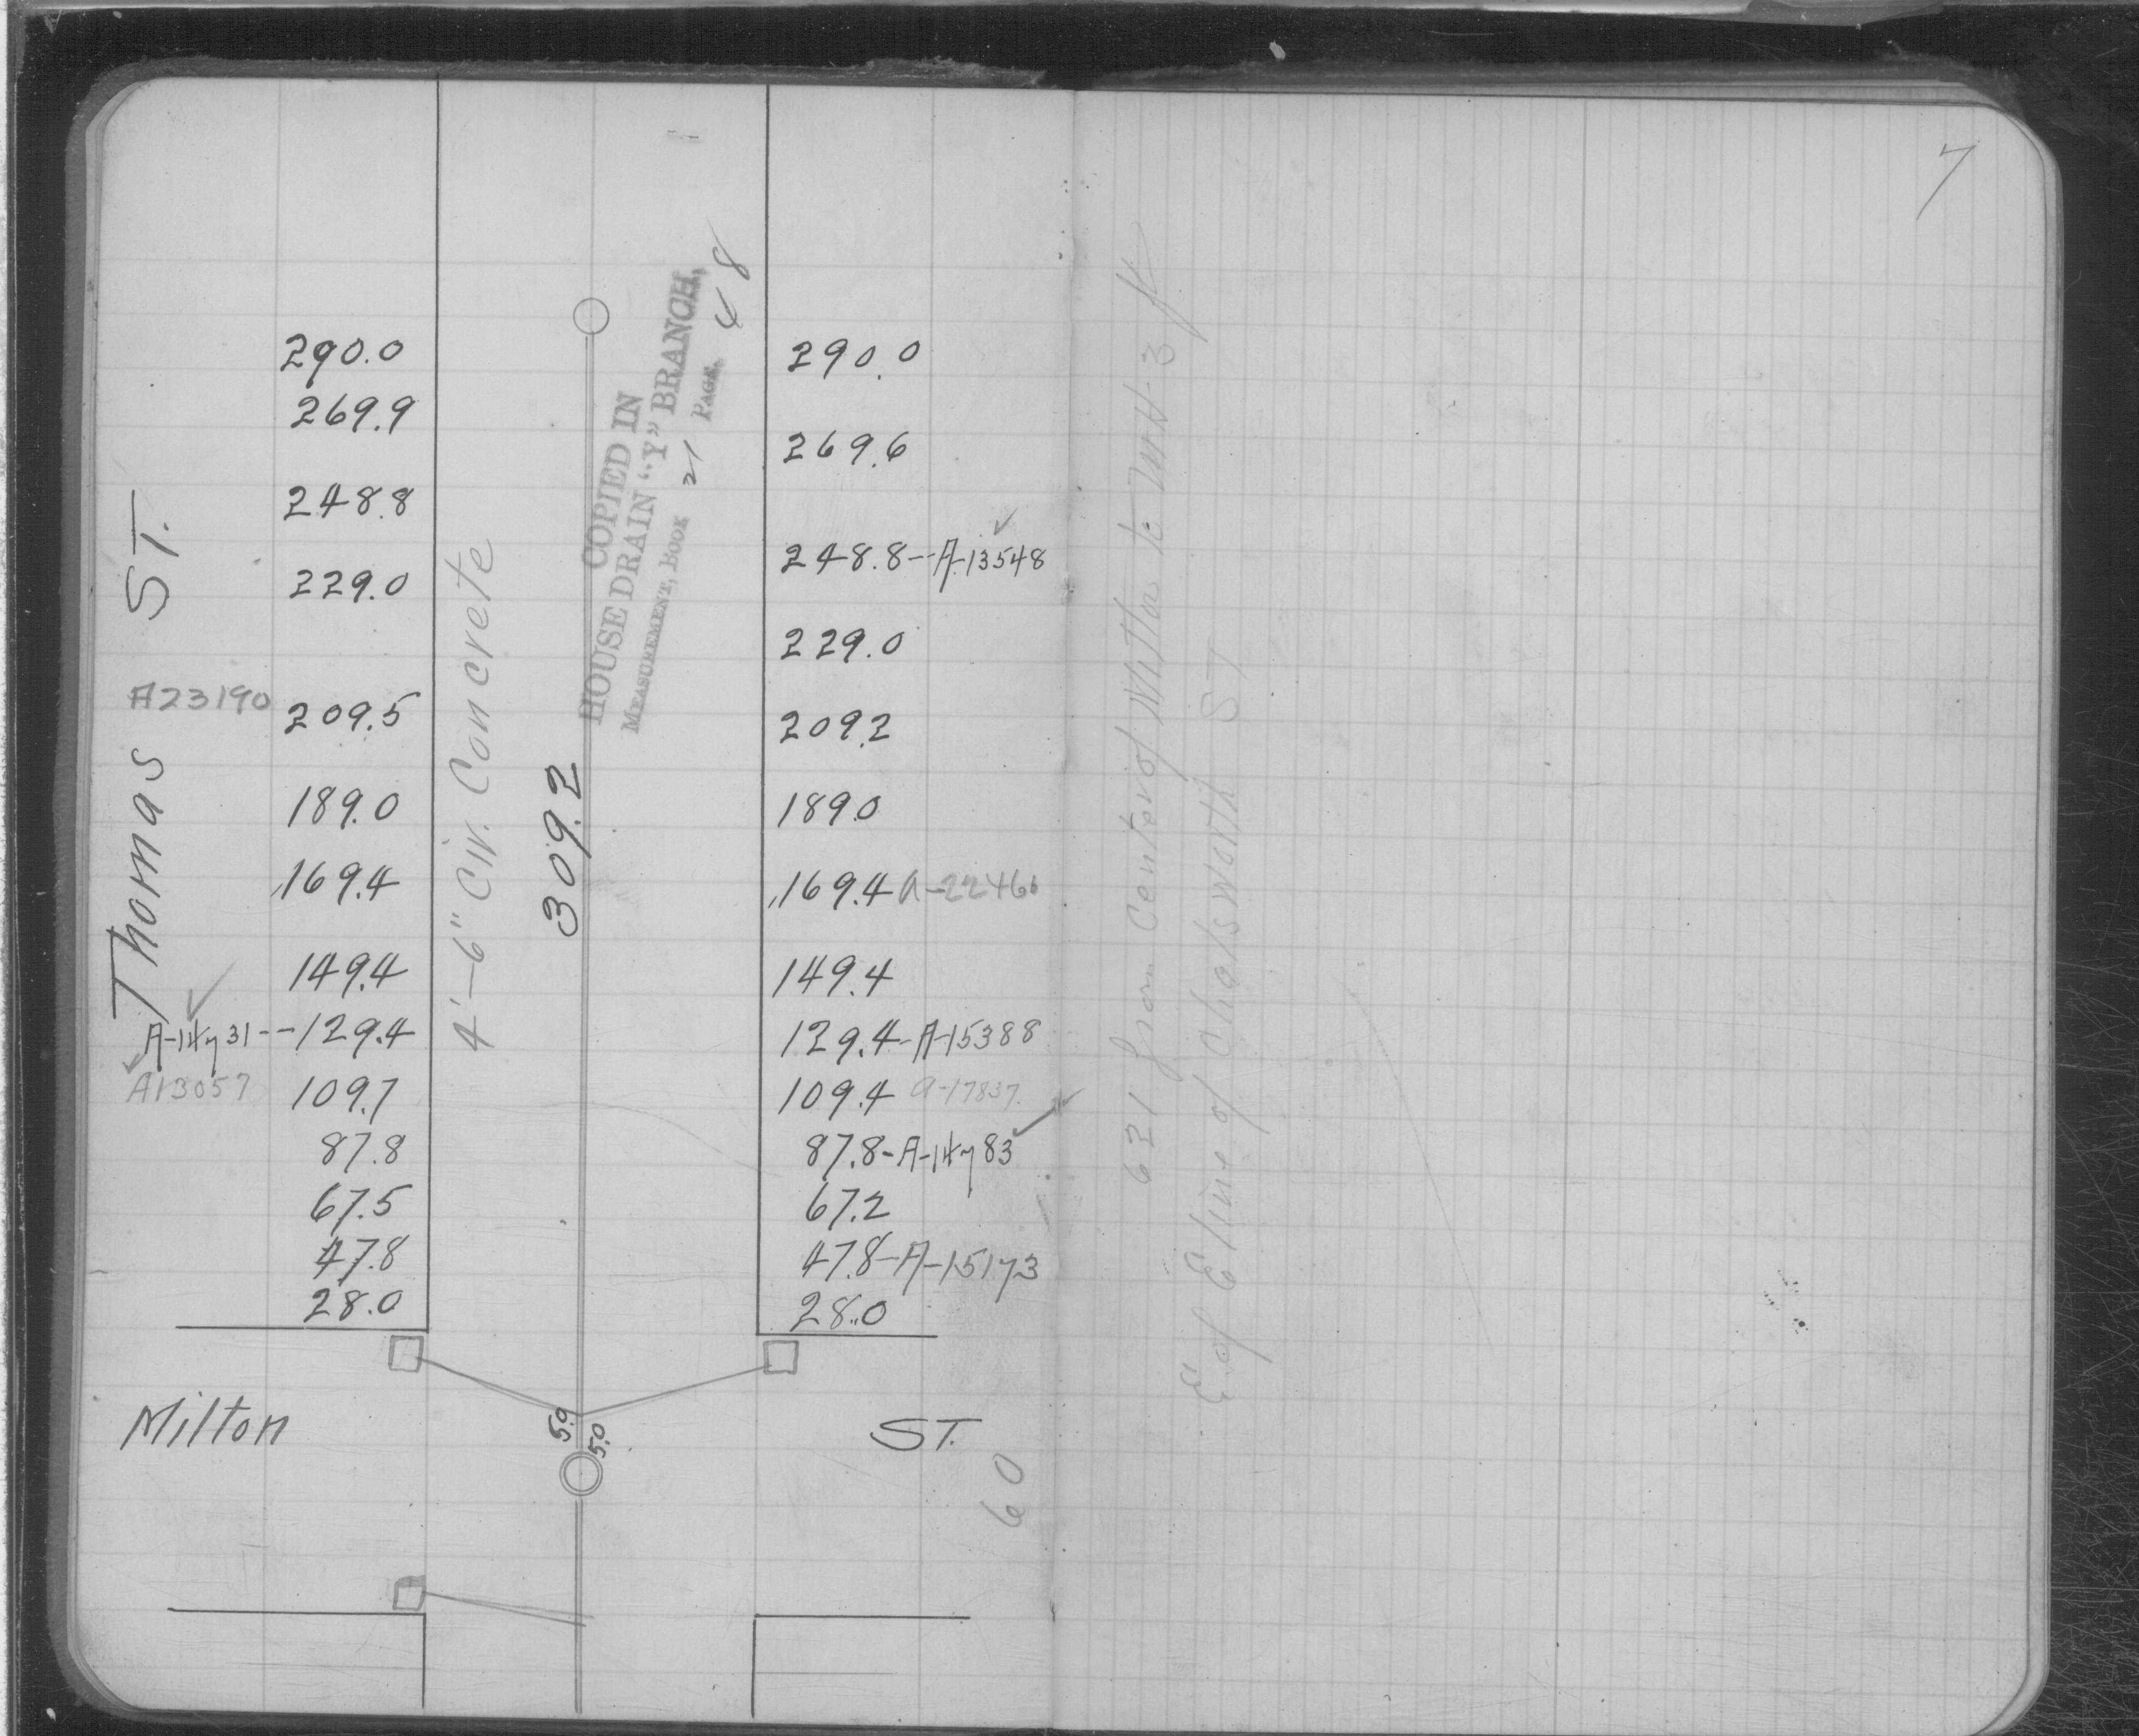 7
290.0
269.9
248.8
229.0
A23190 209.5
189.0
169.4
149.4
A-14731--129.4
A13057 109.7
87.8
67.5
47.8
28.0
Thomas ST.
4'-6" Cir. Concrete
309.2
COPIED IN
HOUSE DRAIN "Y" BRANCH,
MEASUREMENT, BOOK 21 PAGE 48
290.0
269.6
248.8--A-13548
229.0
209.2
189.0
169.4 A-22466
149.4
129.4-A-15388
109.4 a-17837
87.8-A-14783
67.2
47.8-A-15173
28.0
Milton ST.
5.0
5.0
60
621 from Center of Milton to MH-3 ft
E of E line of Chatsworth ST